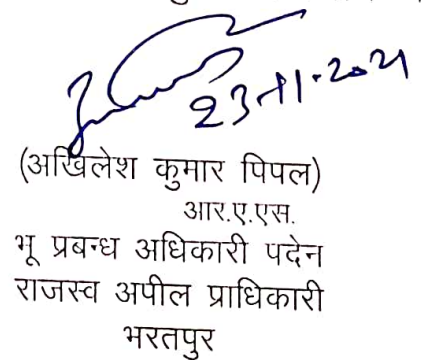 23-11-2021
(अखिलेश कुमार पिपल)
आर.ए.एस.
भू प्रबन्ध अधिकारी पदेन
राजस्व अपील प्राधिकारी
भरतपुर